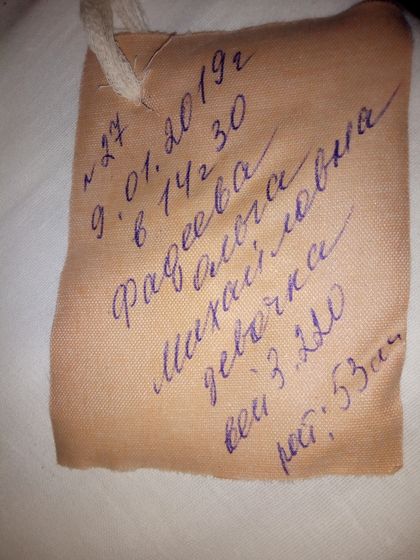 №27
9.01.2019г
в 14ч30
Фадеева
Ольга
Михайловна
девочка
вей 3.220
рост: 53см